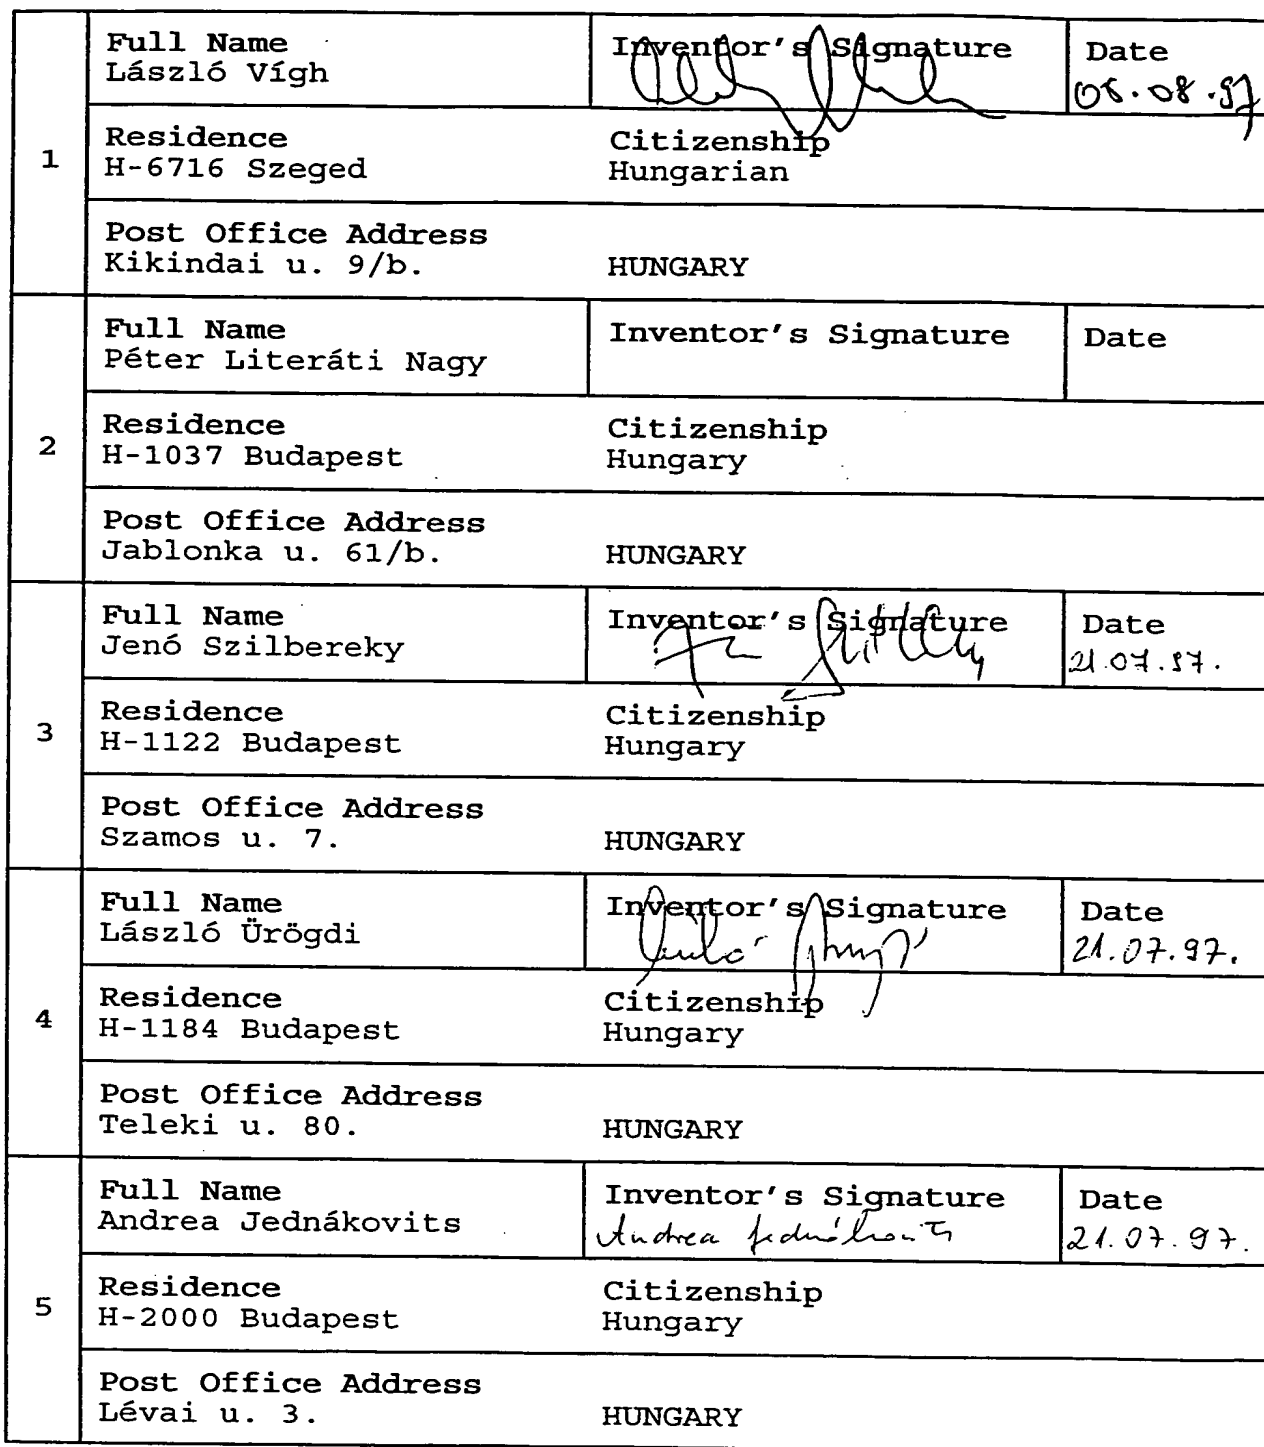 1
Full Name
László Vígh
Inventor's Signature
Date
06.08.97
Residence
H-6716 Szeged
Citizenship
Hungarian
Post Office Address
Kikindai u. 9/b.
HUNGARY
2
Full Name
Péter Literáti Nagy
Inventor's Signature
Date
Residence
H-1037 Budapest
Citizenship
Hungary
Post Office Address
Jablonka u. 61/b.
HUNGARY
3
Full Name
Jenó Szilbereky
Inventor's Signature
Date
21.07.97.
Residence
H-1122 Budapest
Citizenship
Hungary
Post Office Address
Szamos u. 7.
HUNGARY
4
Full Name
László Ürögdi
Inventor's Signature
Date
21.07.97.
Residence
H-1184 Budapest
Citizenship
Hungary
Post Office Address
Teleki u. 80.
HUNGARY
5
Full Name
Andrea Jednákovits
Inventor's Signature
Andrea Jednákovits
Date
21.07.97.
Residence
H-2000 Budapest
Citizenship
Hungary
Post Office Address
Lévai u. 3.
HUNGARY